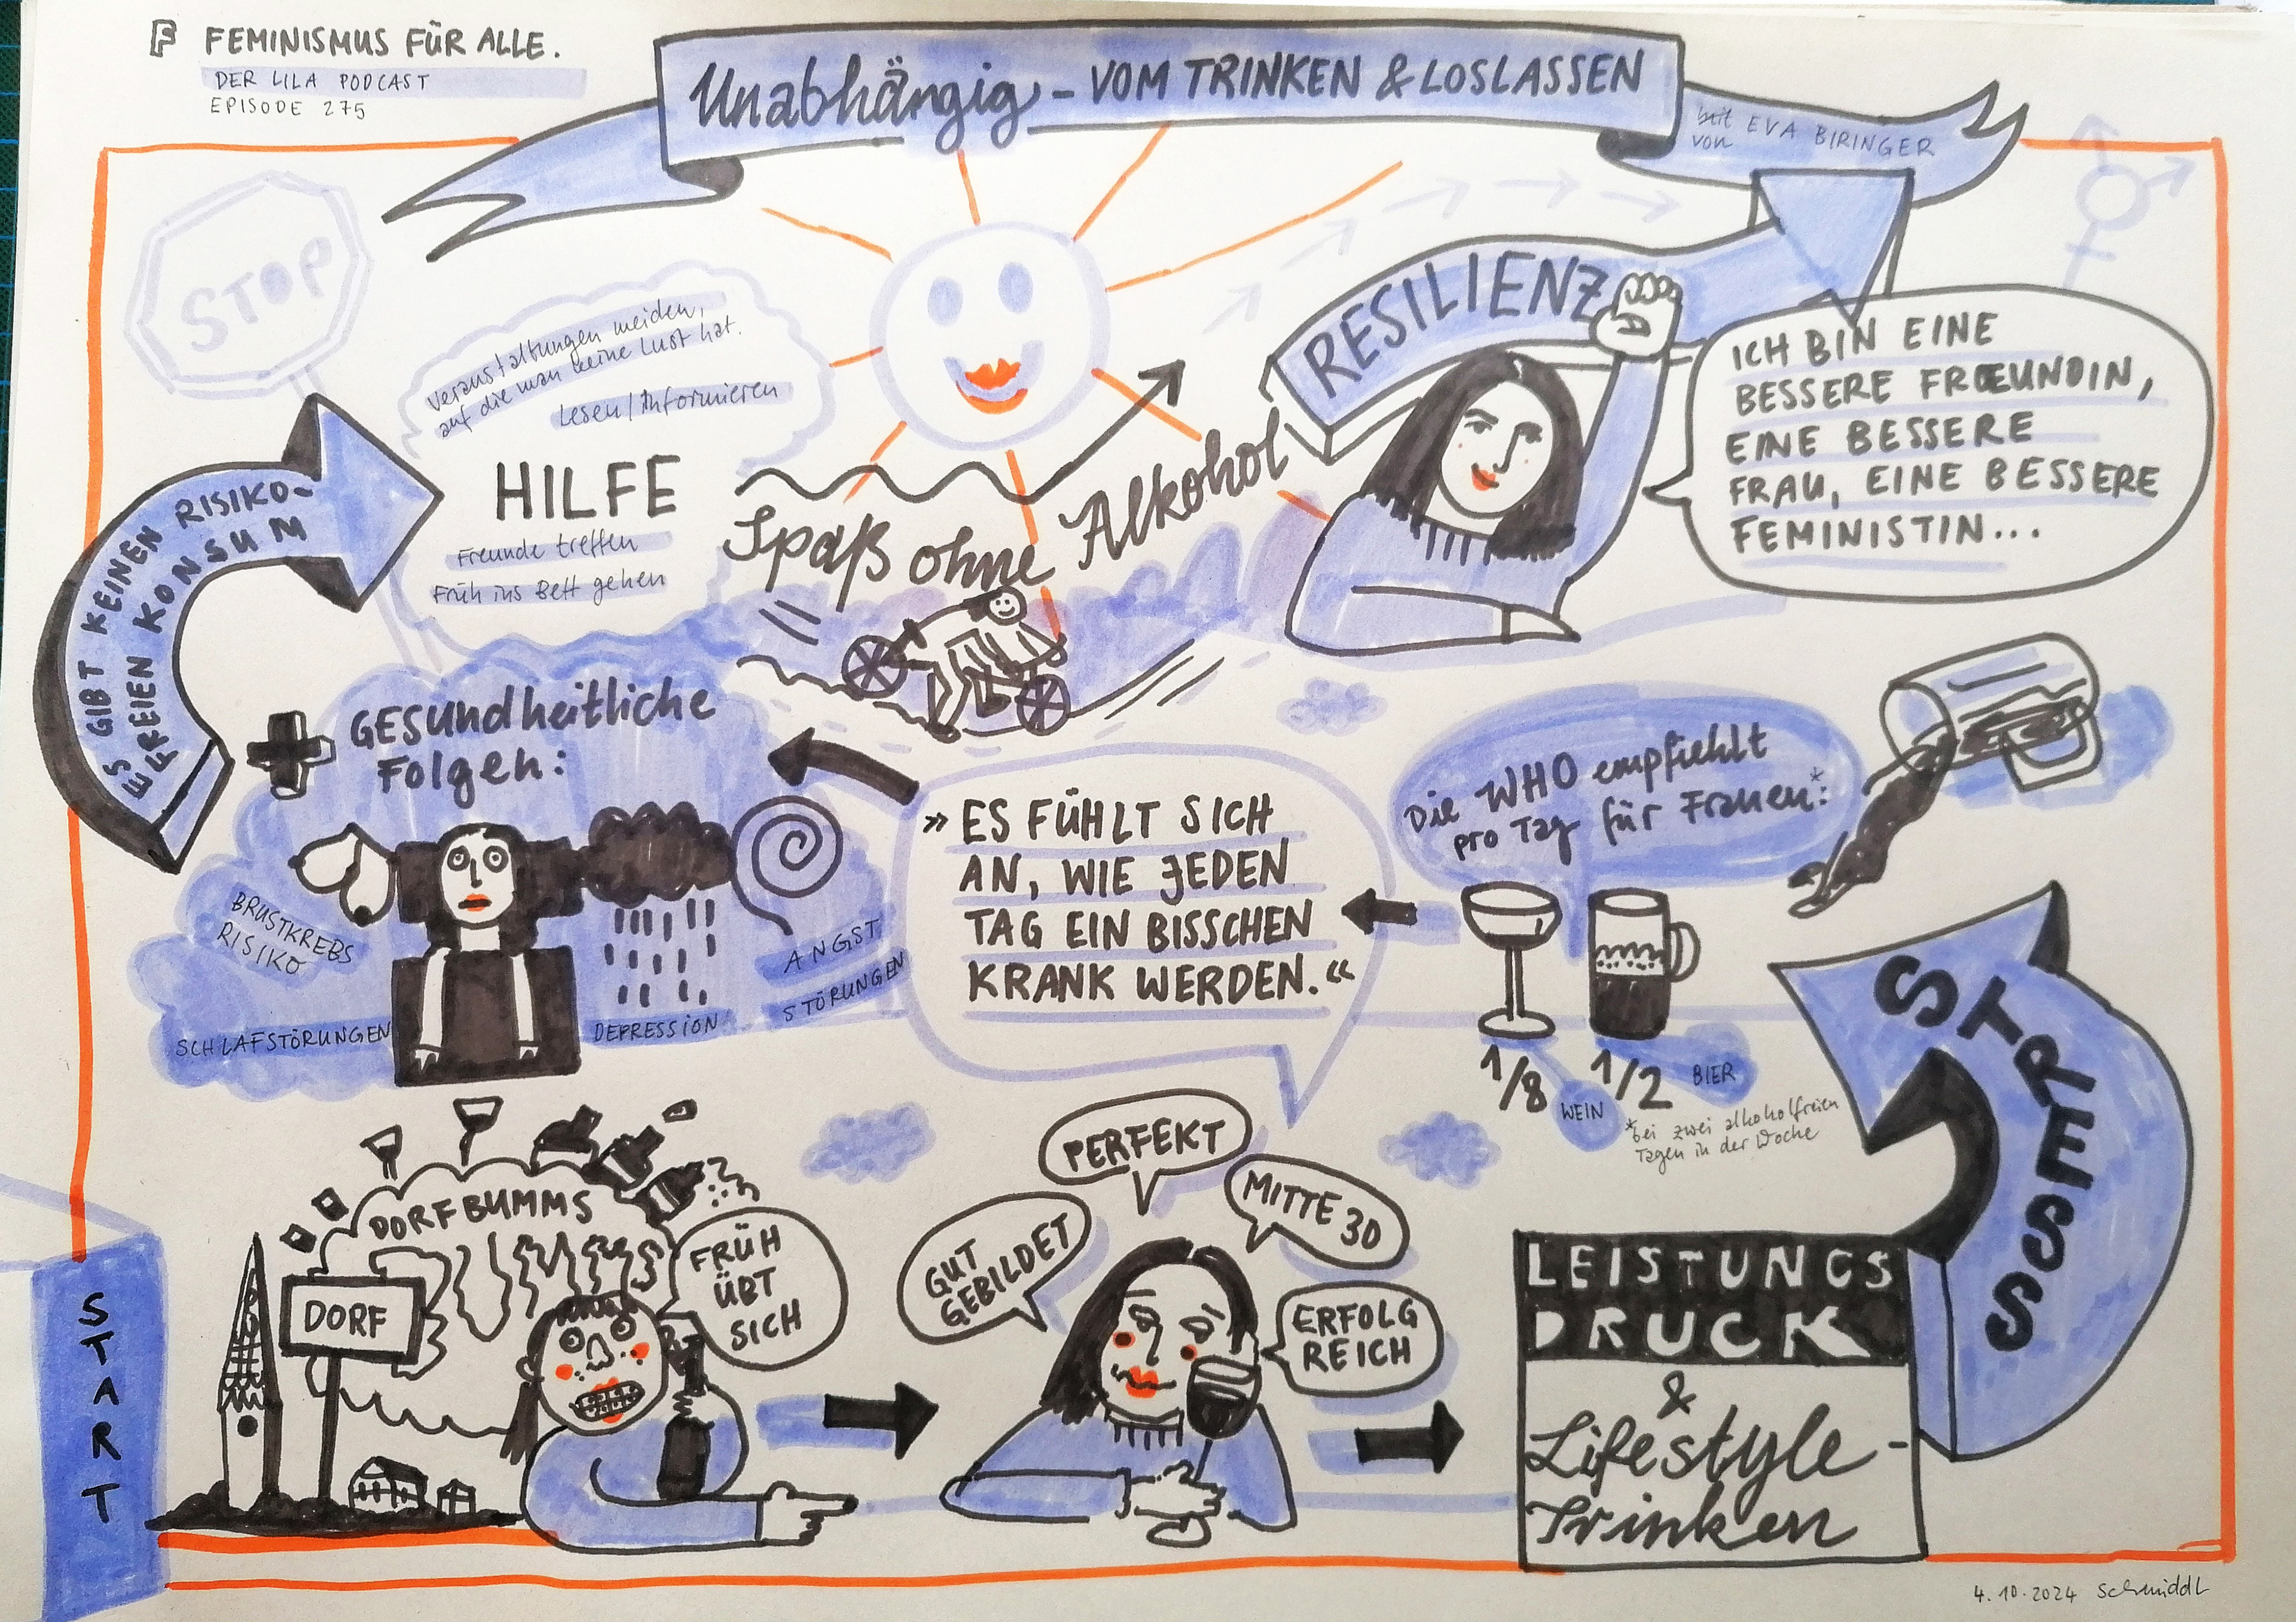 F FEMINISMUS FÜR ALLE.
DER LILA PODCAST
EPISODE 275
Unabhängig - VOM TRINKEN & LOSLASSEN
mit
von EVA BIRINGER
STOP
Veranstaltungen meiden,
auf die man keine Lust hat.
Lesen/Informieren
HILFE
Freunde treffen
Früh ins Bett gehen
ES GIBT KEINEN RISIKO-
FREIEN KONSUM
Spaß ohne Alkohol
RESILIENZ
ICH BIN EINE
BESSERE FREUNDIN,
EINE BESSERE
FRAU, EINE BESSERE
FEMINISTIN...
GESUNDHEITLICHE
FOLGEN:
BRUSTKREBS
RISIKO
SCHLAFSTÖRUNGEN
DEPRESSION
ANGST
STÖRUNGEN
» ES FÜHLT SICH
AN, WIE JEDEN
TAG EIN BISSCHEN
KRANK WERDEN. «
Die WHO empfiehlt
pro Tag für Frauen:*
1/8 WEIN
1/2 BIER
*bei zwei alkoholfreien
Tagen in der Woche
STRESS
START
DORFBUMMS
DORF
FRÜH
ÜBT
SICH
GUT
GEBILDET
PERFEKT
MITTE 30
ERFOLG
REICH
LEISTUNGS
DRUCK
&
Lifestyle-
Trinken
4.10.2024 Schmiddl